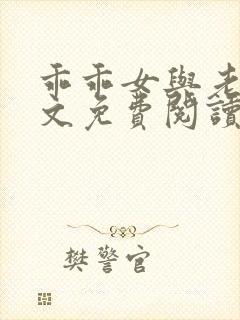 乖乖女與老
文免費閱讀
樊警官